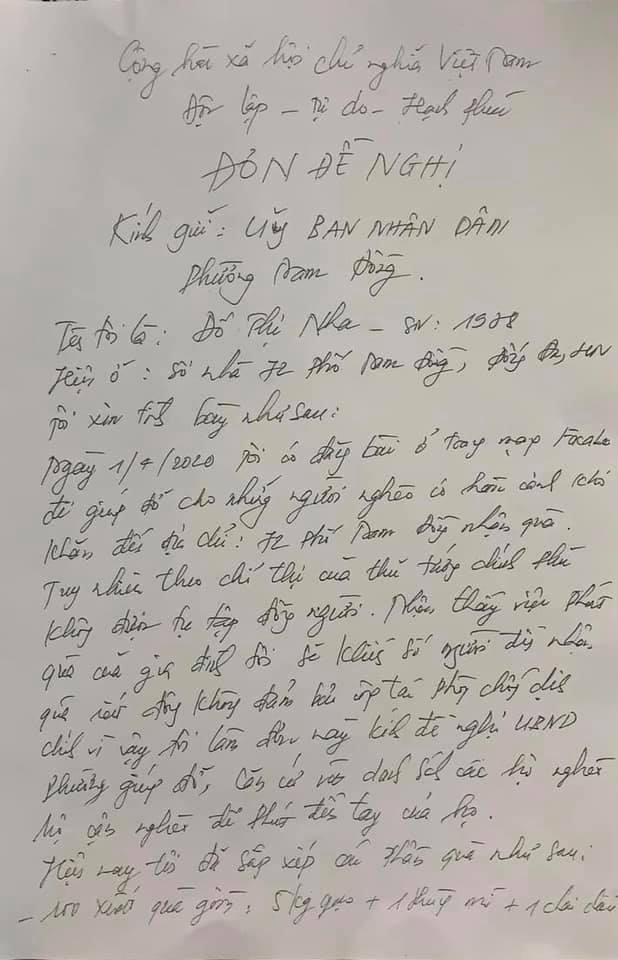 Cộng hòa xã hội chủ nghĩa Việt Nam
Độc lập - Tự do - Hạnh phúc
ĐƠN ĐỀ NGHỊ
Kính gửi: Uỷ BAN NHÂN DÂN
Phường Nam Đồng.
Tên tôi là: Đỗ Thị Nha - SN: 1978
Hiện ở: Số nhà 72 phố Nam Đồng, Đống Đa, HN
Tôi xin trình bày như sau:
Ngày 1/4/2020 Tôi có đăng bài ở trang mạng
để giúp đỡ cho những người nghèo có hoàn cảnh khó
khăn đến địa chỉ: 72 phố Nam Đồng nhận quà.
Tuy nhiên theo chỉ thị của thủ tướng chính phủ
không được tụ tập đông người. Nhận thấy việc phát
quà của gia đình tôi sẽ khiến số người đến nhận
quà rất đông không đảm bảo công tác phòng chống dịch
chính vì vậy tôi làm đơn này kính đề nghị UBND
phường giúp đỡ, căn cứ vào danh sách các hộ nghèo
hộ cận nghèo để phát đến tay của họ.
Hiện nay tôi đã sắp xếp các phần quà như sau:
- 100 xuất quà gồm: 5kg gạo + 1 thùng mì + 1 chai dầu